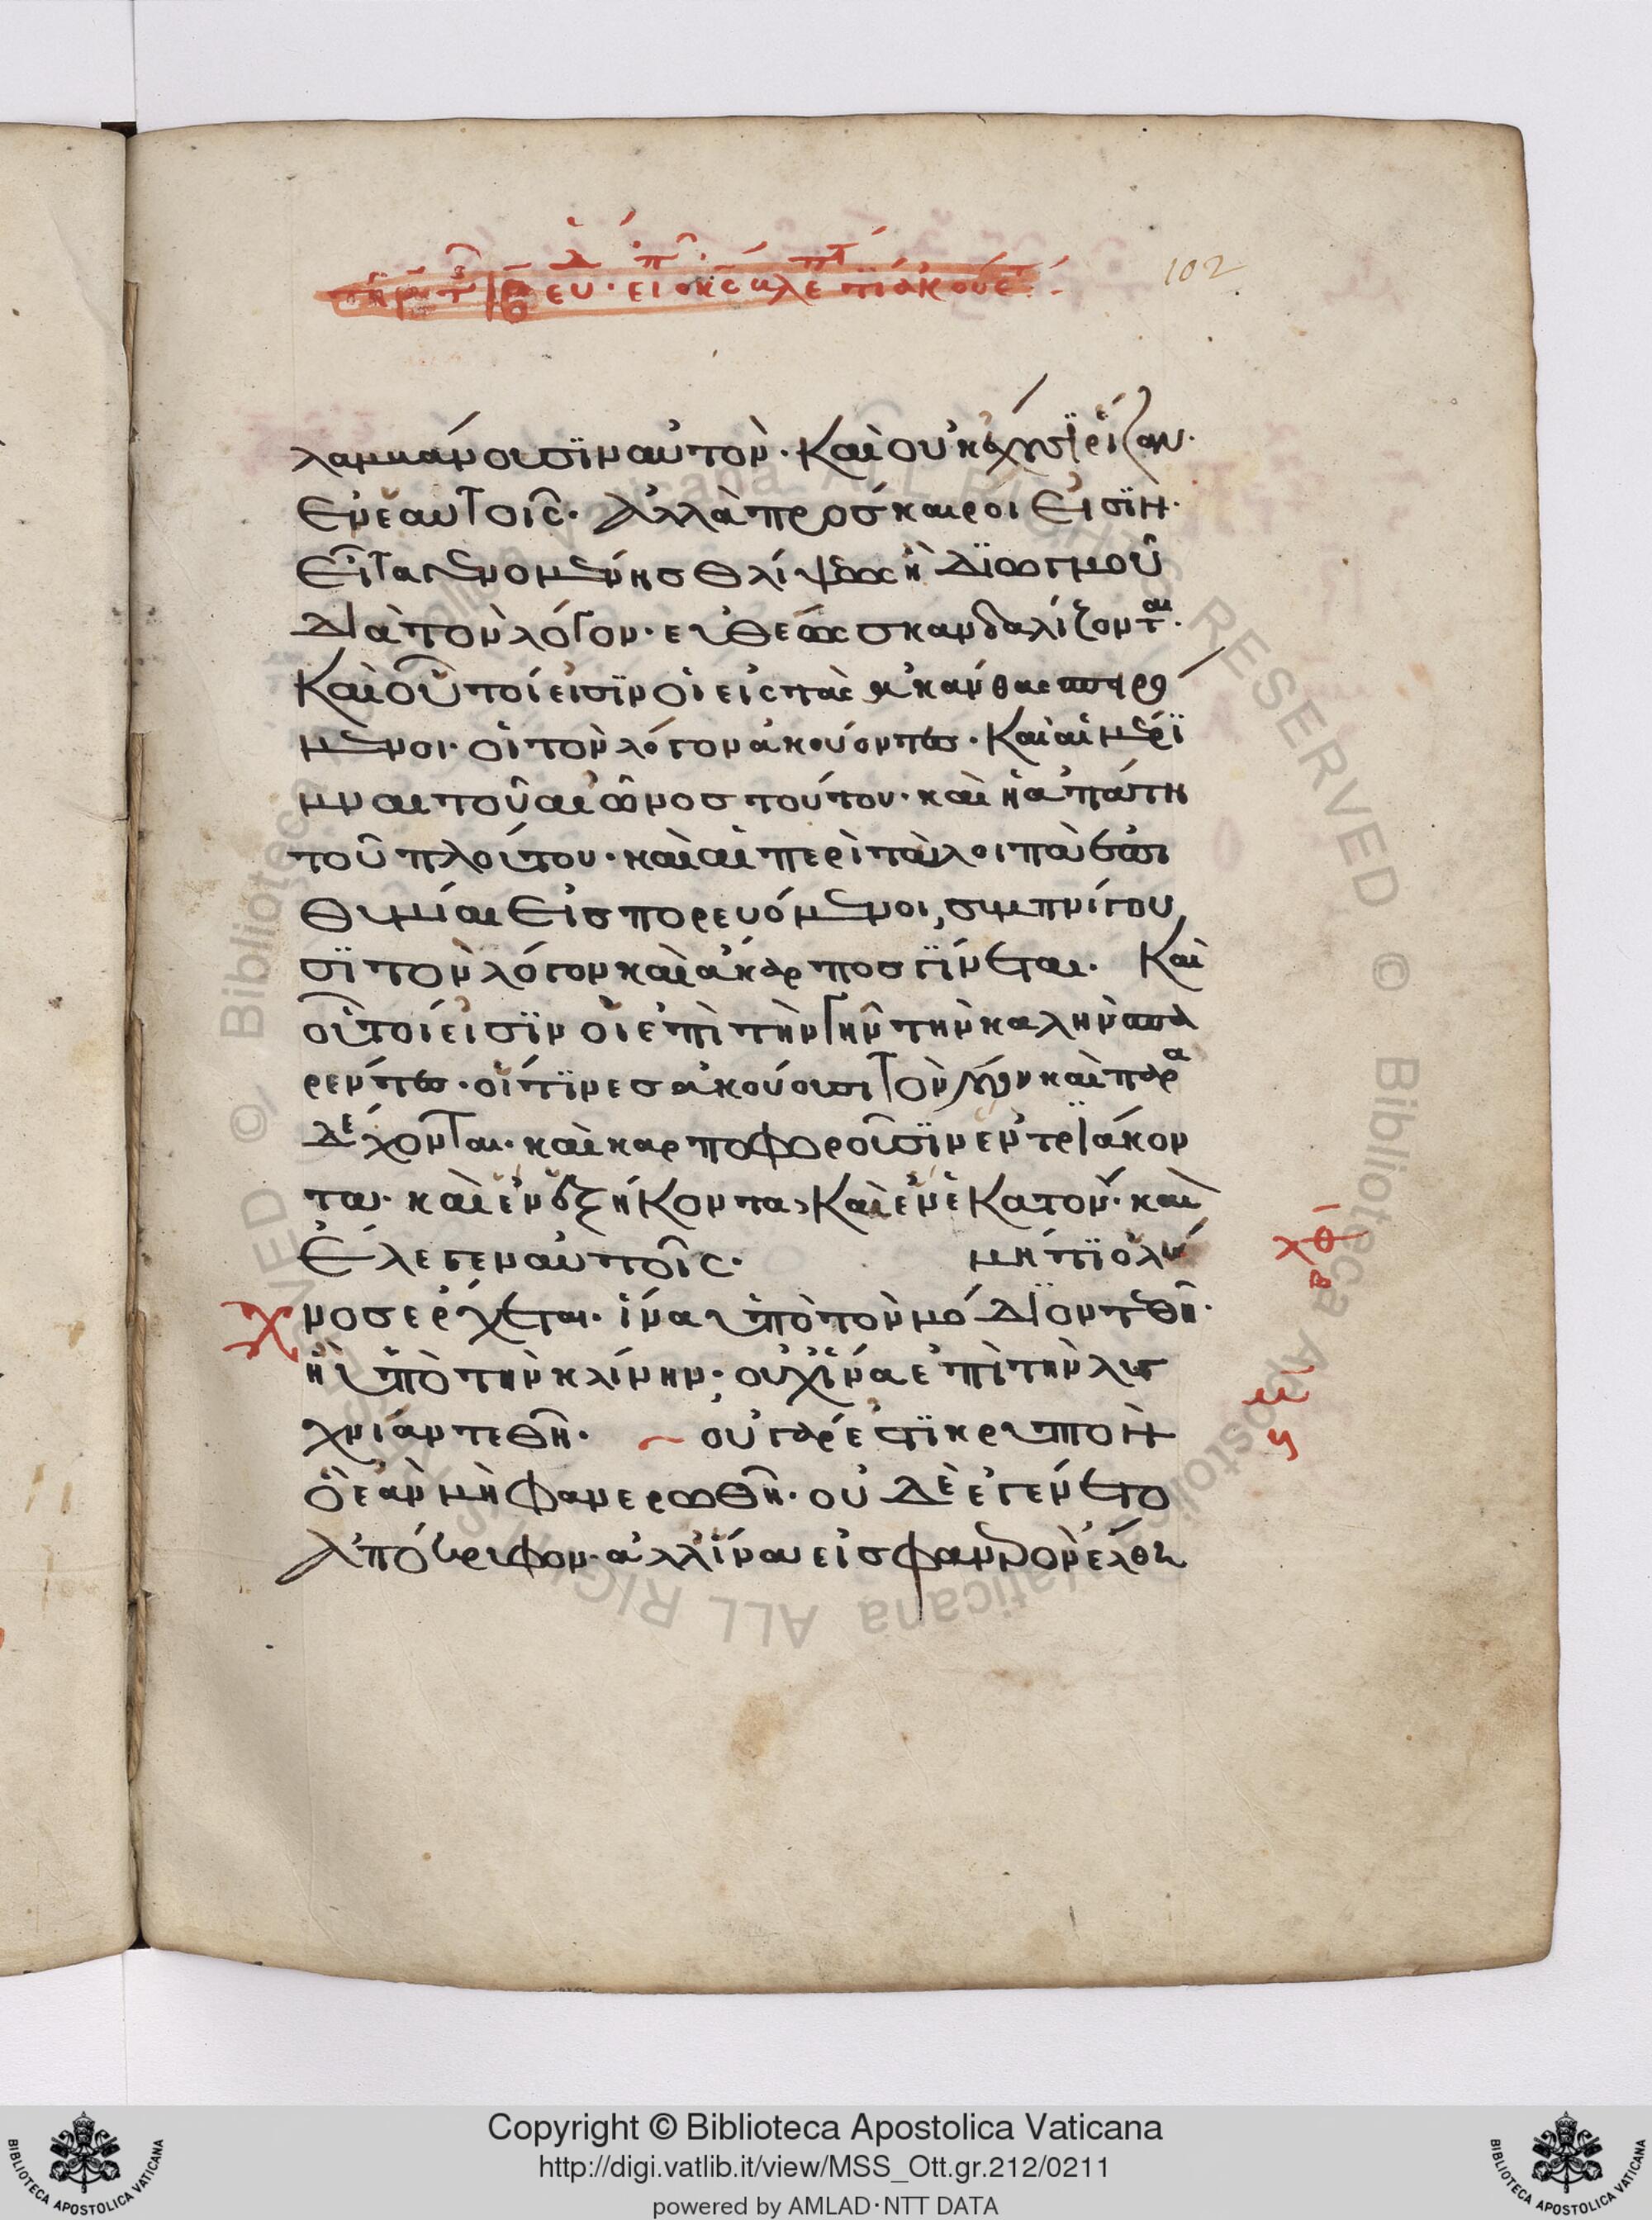 102
λαμβάνουσϊν αὐτὸν· Καὶ οὐκ ἔχουσϊ ρίζαν·
Ἐν ἑαυτοῖς· Ἀλλὰ πρόσκαιροι Εἰσϊν·
Εἶτα γενομένης θλίψεως ἢ Δϊωγμοῦ
Διὰ τὸν λόγον· εὐθέως σκανδαλίζονται·
Καὶ οὗτοί εἰσϊν οἱ εἰς τὰς ἀκάνθας σπειρό
μενοι· οἱ τὸν λόγον ἀκούοντες· Καὶ αἱ μέρϊ
μναι τοῦ αἰῶνος τούτου· καὶ ἡ ἀπάτη
τοῦ πλούτου· καὶ αἱ περὶ τὰ λοιπὰ ἐπι
θυμίαι Εἰσπορευόμενοι, συμπνίγου
σϊ τὸν λόγον καὶ ἄκαρπος γίνεται. Καὶ
οὗτοί εἰσϊν οἱ ἐπὶ τὴν γῆν τὴν καλὴν σπα
ρέντες· οἵτϊνες ἀκούουσι τὸν λόγον καὶ παρα
Δέχονται· καὶ καρποφοροῦσϊν ἐν τριάκον
τα· καὶ ἐν ἑξήκοντα, Καὶ ἐν ἑκατόν· καὶ
Ἔλεγεν αὐτοῖς· μήτϊ ὁ λύ
χνος ἔρχεται· ἵνα ὑπὸ τὸν μόδιον τεθῆ·
ἢ ὑπὸ τὴν κλίνην· οὐχ ἵνα ἐπὶ τὴν λυ
χνίαν τεθῆ· οὐ γάρ ἐστϊ κρυπτὸν
ὃ ἐὰν μὴ φανερωθῆ· οὐδὲ ἐγένετο
Ἀπόκρυφον· ἀλλ' ἵνα εἰς φανερὸν ἔλθη
Copyright © Biblioteca Apostolica Vaticana
http://digi.vatlib.it/view/MSS_Ott.gr.212/0211
powered by AMLAD·NTT DATA
BIBLIOTECA APOSTOLICA VATICANA
BIBLIOTECA APOSTOLICA VATICANA